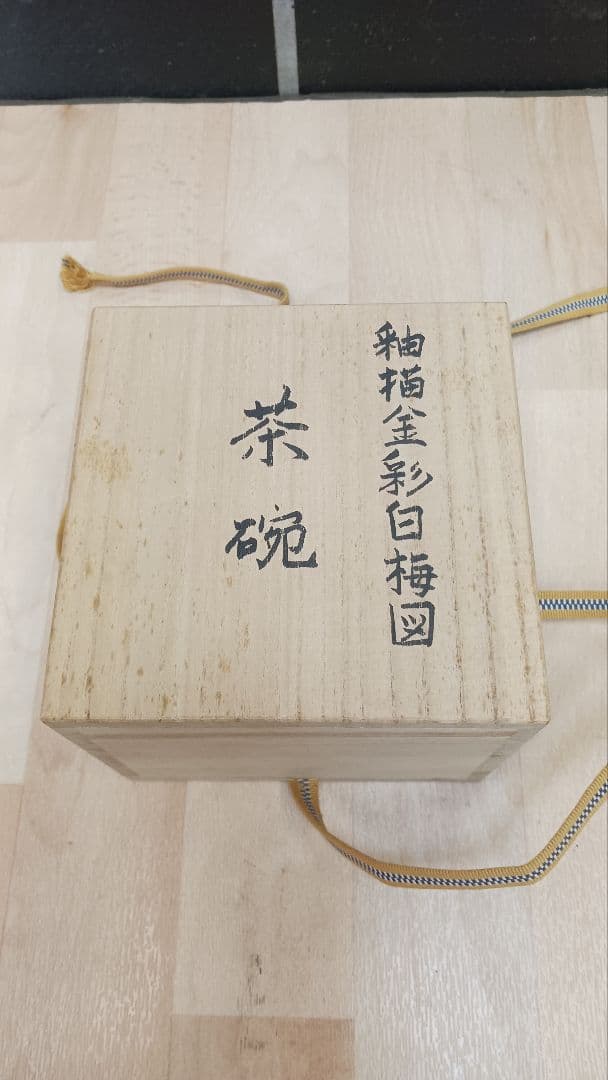 釉描金彩白梅図
茶碗